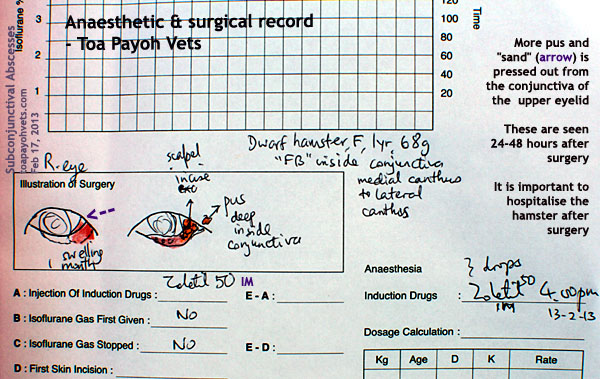 Anaesthetic & surgical record
- Toa Payoh Vets
Isoflurane %
3
2
1
120
100
80
60
40
20
Time
Subconjunctival Abscesses
toapayohvets.com
Feb 17, 2013
More pus and
"sand" (arrow) is
pressed out from
the conjunctiva of
the upper eyelid
These are seen
24-48 hours after
surgery
It is important to
hospitalise the
hamster after
surgery
Dwarf hamster, F, 1yr, 68g
"FB" inside conjunctiva
medial canthus
to lateral
canthus
R. eye
scalpel
incise
Illustration of Surgery
pus
deep
inside
conjunctiva
swelling
1 month
A : Injection Of Induction Drugs : Zoletil 50 IM
E - A :
B : Isoflurane Gas First Given : No
C : Isoflurane Gas Stopped : No
E - D :
D : First Skin Incision :
Anaesthesia
2 drops
Induction Drugs : Zoletil 50 4.00pm
IM 13-2-13
Dosage Calculation :
Kg Age D K Rate